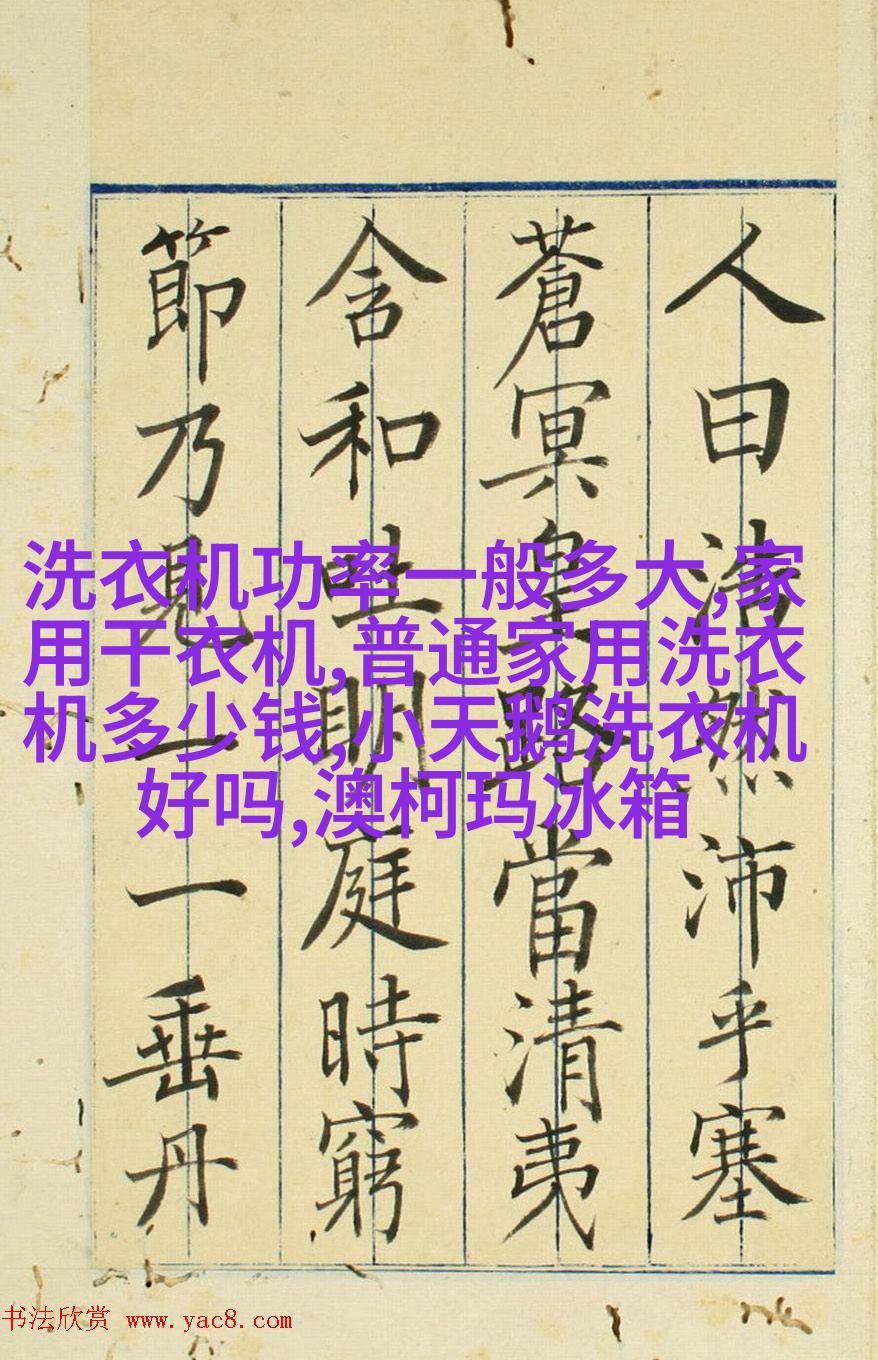 人曰浩然沛乎塞
蒼冥皇路當清夷
含和吐明庭時窮
節乃見一一垂丹
洗衣机功率一般多大,家
用干衣机,普通家用洗衣
机多少钱,小天鹅洗衣机
好吗,澳柯玛冰箱
书法欣赏 www.yac8.com